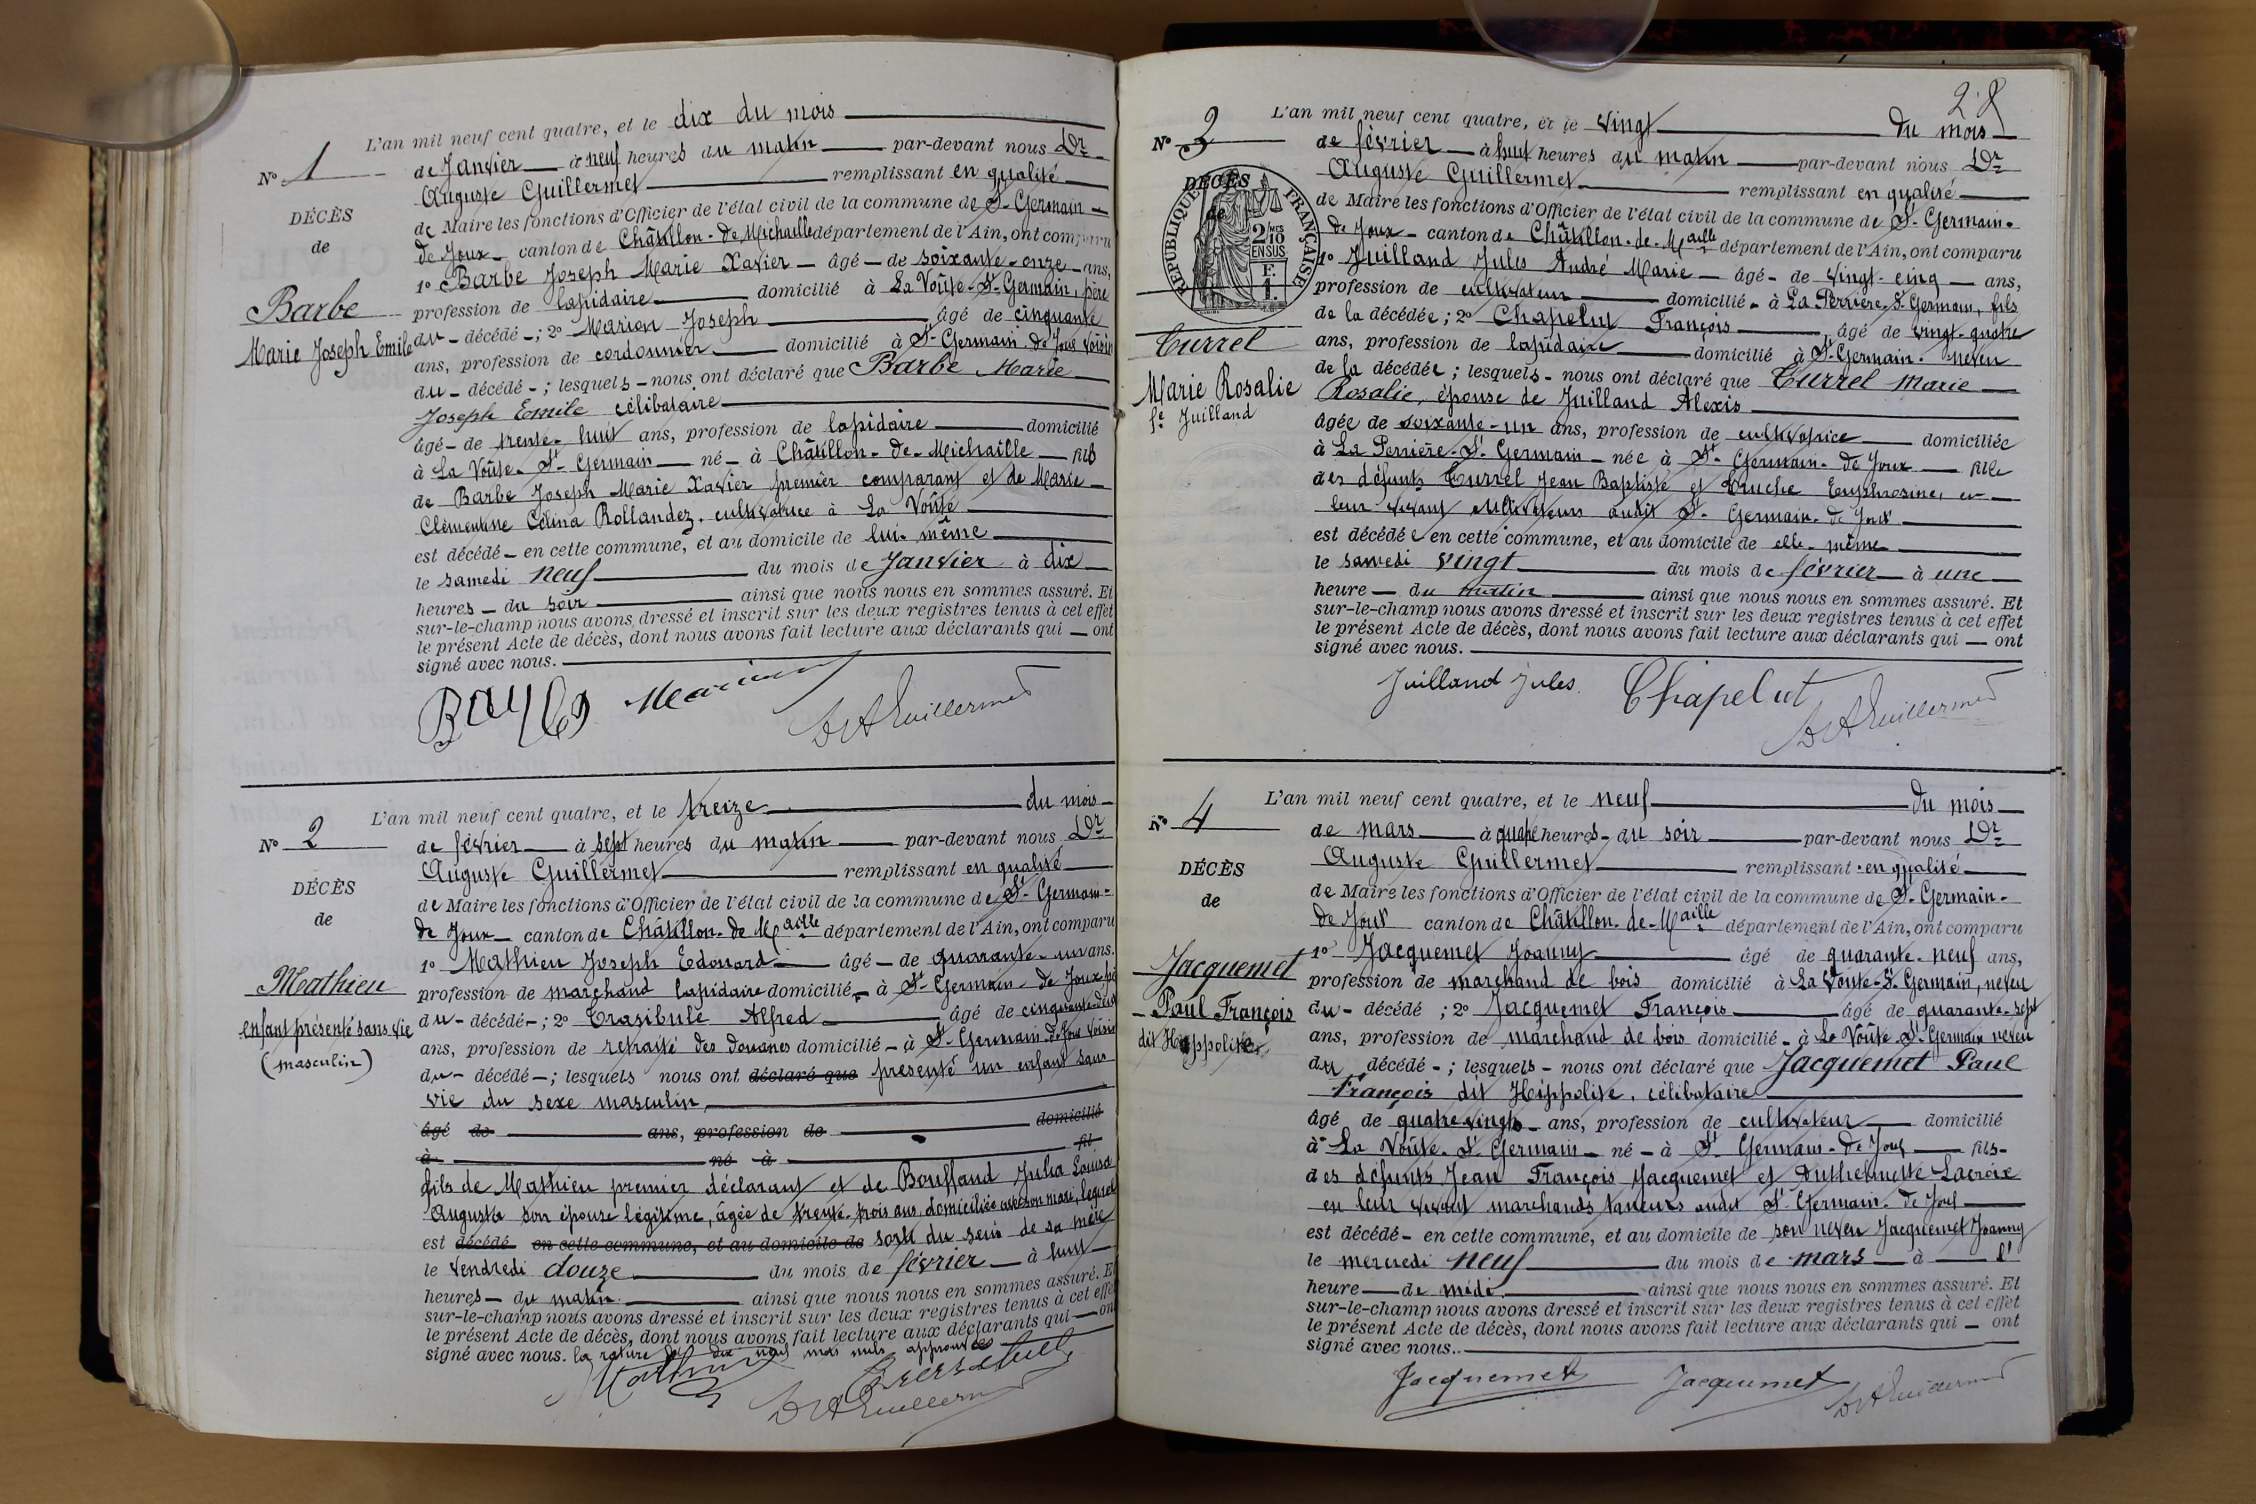 L'an mil neuf cent quatre, et le dix du mois
No 1
de Janvier à neuf heures du matin par-devant nous Dr
Auguste Guillermet remplissant en qualité
DÉCÈS
de Maire les fonctions d'Officier de l'état civil de la commune de St Germain
de
de Joux canton de Châtillon-de-Michaille département de l'Ain, ont comparu
1o Barbe Joseph Marie Xavier âgé de soixante-onze ans,
Barbe
profession de lapidaire domicilié à La Voûte-St Germain, père
Marie Joseph Emile
du décédé ; 2o Marion Joseph âgé de cinquante
ans, profession de cordonnier domicilié à St Germain de Joux voisin
du décédé ; lesquels nous ont déclaré que Barbe Marie
Joseph Emile célibataire
âgé de trente-huit ans, profession de lapidaire domicilié
à La Voûte-St Germain né à Châtillon-de-Michaille fils
de Barbe Joseph Marie Xavier premier comparant et de Marie
Clémentine Célina Rollandez, cultivatrice à La Voûte
est décédé en cette commune, et au domicile de lui-même
le samedi neuf du mois de Janvier à dix
heures du soir ainsi que nous nous en sommes assuré. Et
sur-le-champ nous avons dressé et inscrit sur les deux registres tenus à cet effet
le présent Acte de décès, dont nous avons fait lecture aux déclarants qui ont
signé avec nous.
Marion
Dr A Guillermet
L'an mil neuf cent quatre, et le treize du mois
No 2
de février à sept heures du matin par-devant nous Dr
Auguste Guillermet remplissant en qualité
DÉCÈS
de Maire les fonctions d'Officier de l'état civil de la commune de St Germain-
de
de Joux canton de Châtillon-de-Maille département de l'Ain, ont comparu
1o Mathieu Joseph Edouard âgé de quarante-un ans.
Mathieu
profession de marchand lapidaire domicilié à St Germain-de Joux
enfant présenté sans vie
du décédé ; 2o Trasibule Alfred âgé de
(masculin)
ans, profession de retraité des douanes domicilié à St Germain de Joux voisin
du décédé ; lesquels nous ont déclaré que présenté un enfant sans
vie du sexe masculin
âgé de ans, profession de domicilié
à né à fil
fils de Mathieu premier déclarant et de Bouffand Julia Louisa
Augusta son épouse légitime, âgée de trente-trois ans, domiciliée avec son mari, lequel
est décédé en cette commune, et au domicile de sorti du sein de sa mère
le vendredi douze du mois de février à huit
heures du matin ainsi que nous nous en sommes assuré. Et
sur-le-champ nous avons dressé et inscrit sur les deux registres tenus à cet effet
le présent Acte de décès, dont nous avons fait lecture aux déclarants qui ont
signé avec nous. la rature de dix neuf mots nuls approuvée
Mathieu
Dr A Guillermet
28
L'an mil neuf cent quatre, et le vingt du mois
No 3
de février à huit heures du matin par-devant nous Dr
Auguste Guillermet remplissant en qualité
DÉCÈS
de Maire les fonctions d'Officier de l'état civil de la commune de St Germain-
de
RÉPUBLIQUE FRANÇAISE
2/10MES EN SUS
1 F.
de Joux canton de Châtillon-de-Maille département de l'Ain, ont comparu
1o Juilland Jules André Marie âgé de vingt-cinq ans,
profession de cultivateur domicilié à La Perrière-St Germain, fils
de la décédée ; 2o Chapelut François âgé de vingt-quatre
Turrel
ans, profession de lapidaire domicilié à St Germain neveu
Marie Rosalie
de la décédée ; lesquels nous ont déclaré que Turrel Marie
fe Juilland
Rosalie, épouse de Juilland Alexis
âgée de soixante-un ans, profession de cultivatrice domiciliée
à La Perrière-St Germain née à St Germain-de Joux fille
des défunts Turrel Jean Baptiste et Truche Euphrosine, en
leur vivant cultivateurs audit St Germain-de Joux
est décédée en cette commune, et au domicile de elle-même
le samedi vingt du mois de février à une
heure du matin ainsi que nous nous en sommes assuré. Et
sur-le-champ nous avons dressé et inscrit sur les deux registres tenus à cet effet
le présent Acte de décès, dont nous avons fait lecture aux déclarants qui ont
signé avec nous.
Juilland Jules Chapelut
Dr A Guillermet
L'an mil neuf cent quatre, et le neuf du mois
No 4
de mars à quatre heures du soir par-devant nous Dr
Auguste Guillermet remplissant en qualité
DÉCÈS
de Maire les fonctions d'Officier de l'état civil de la commune de St Germain-
de
de Joux canton de Châtillon-de-Maille département de l'Ain, ont comparu
1o Jacquemet Joanny âgé de quarante-neuf ans,
Jacquemet
profession de marchand de bois domicilié à La Voûte-St Germain, neveu
Paul François
du décédé ; 2o Jacquemet François âgé de quarante-sept
dit Hippolite
ans, profession de marchand de bois domicilié à La Voûte-St Germain neveu
du décédé ; lesquels nous ont déclaré que Jacquemet Paul
François dit Hippolite, célibataire
âgé de quatre vingts ans, profession de cultivateur domicilié
à La Voûte-St Germain né à St Germain-de Joux fils
des défunts Jean François Jacquemet et Lacroix
en leur vivant marchands tanneurs audit St Germain-de Joux
est décédé en cette commune, et au domicile de son neveu Jacquemet Joanny
le mercredi neuf du mois de mars à l'
heure de midi ainsi que nous nous en sommes assuré. Et
sur-le-champ nous avons dressé et inscrit sur les deux registres tenus à cet effet
le présent Acte de décès, dont nous avons fait lecture aux déclarants qui ont
signé avec nous.
Jacquemet Jacquemet
Dr A Guillermet